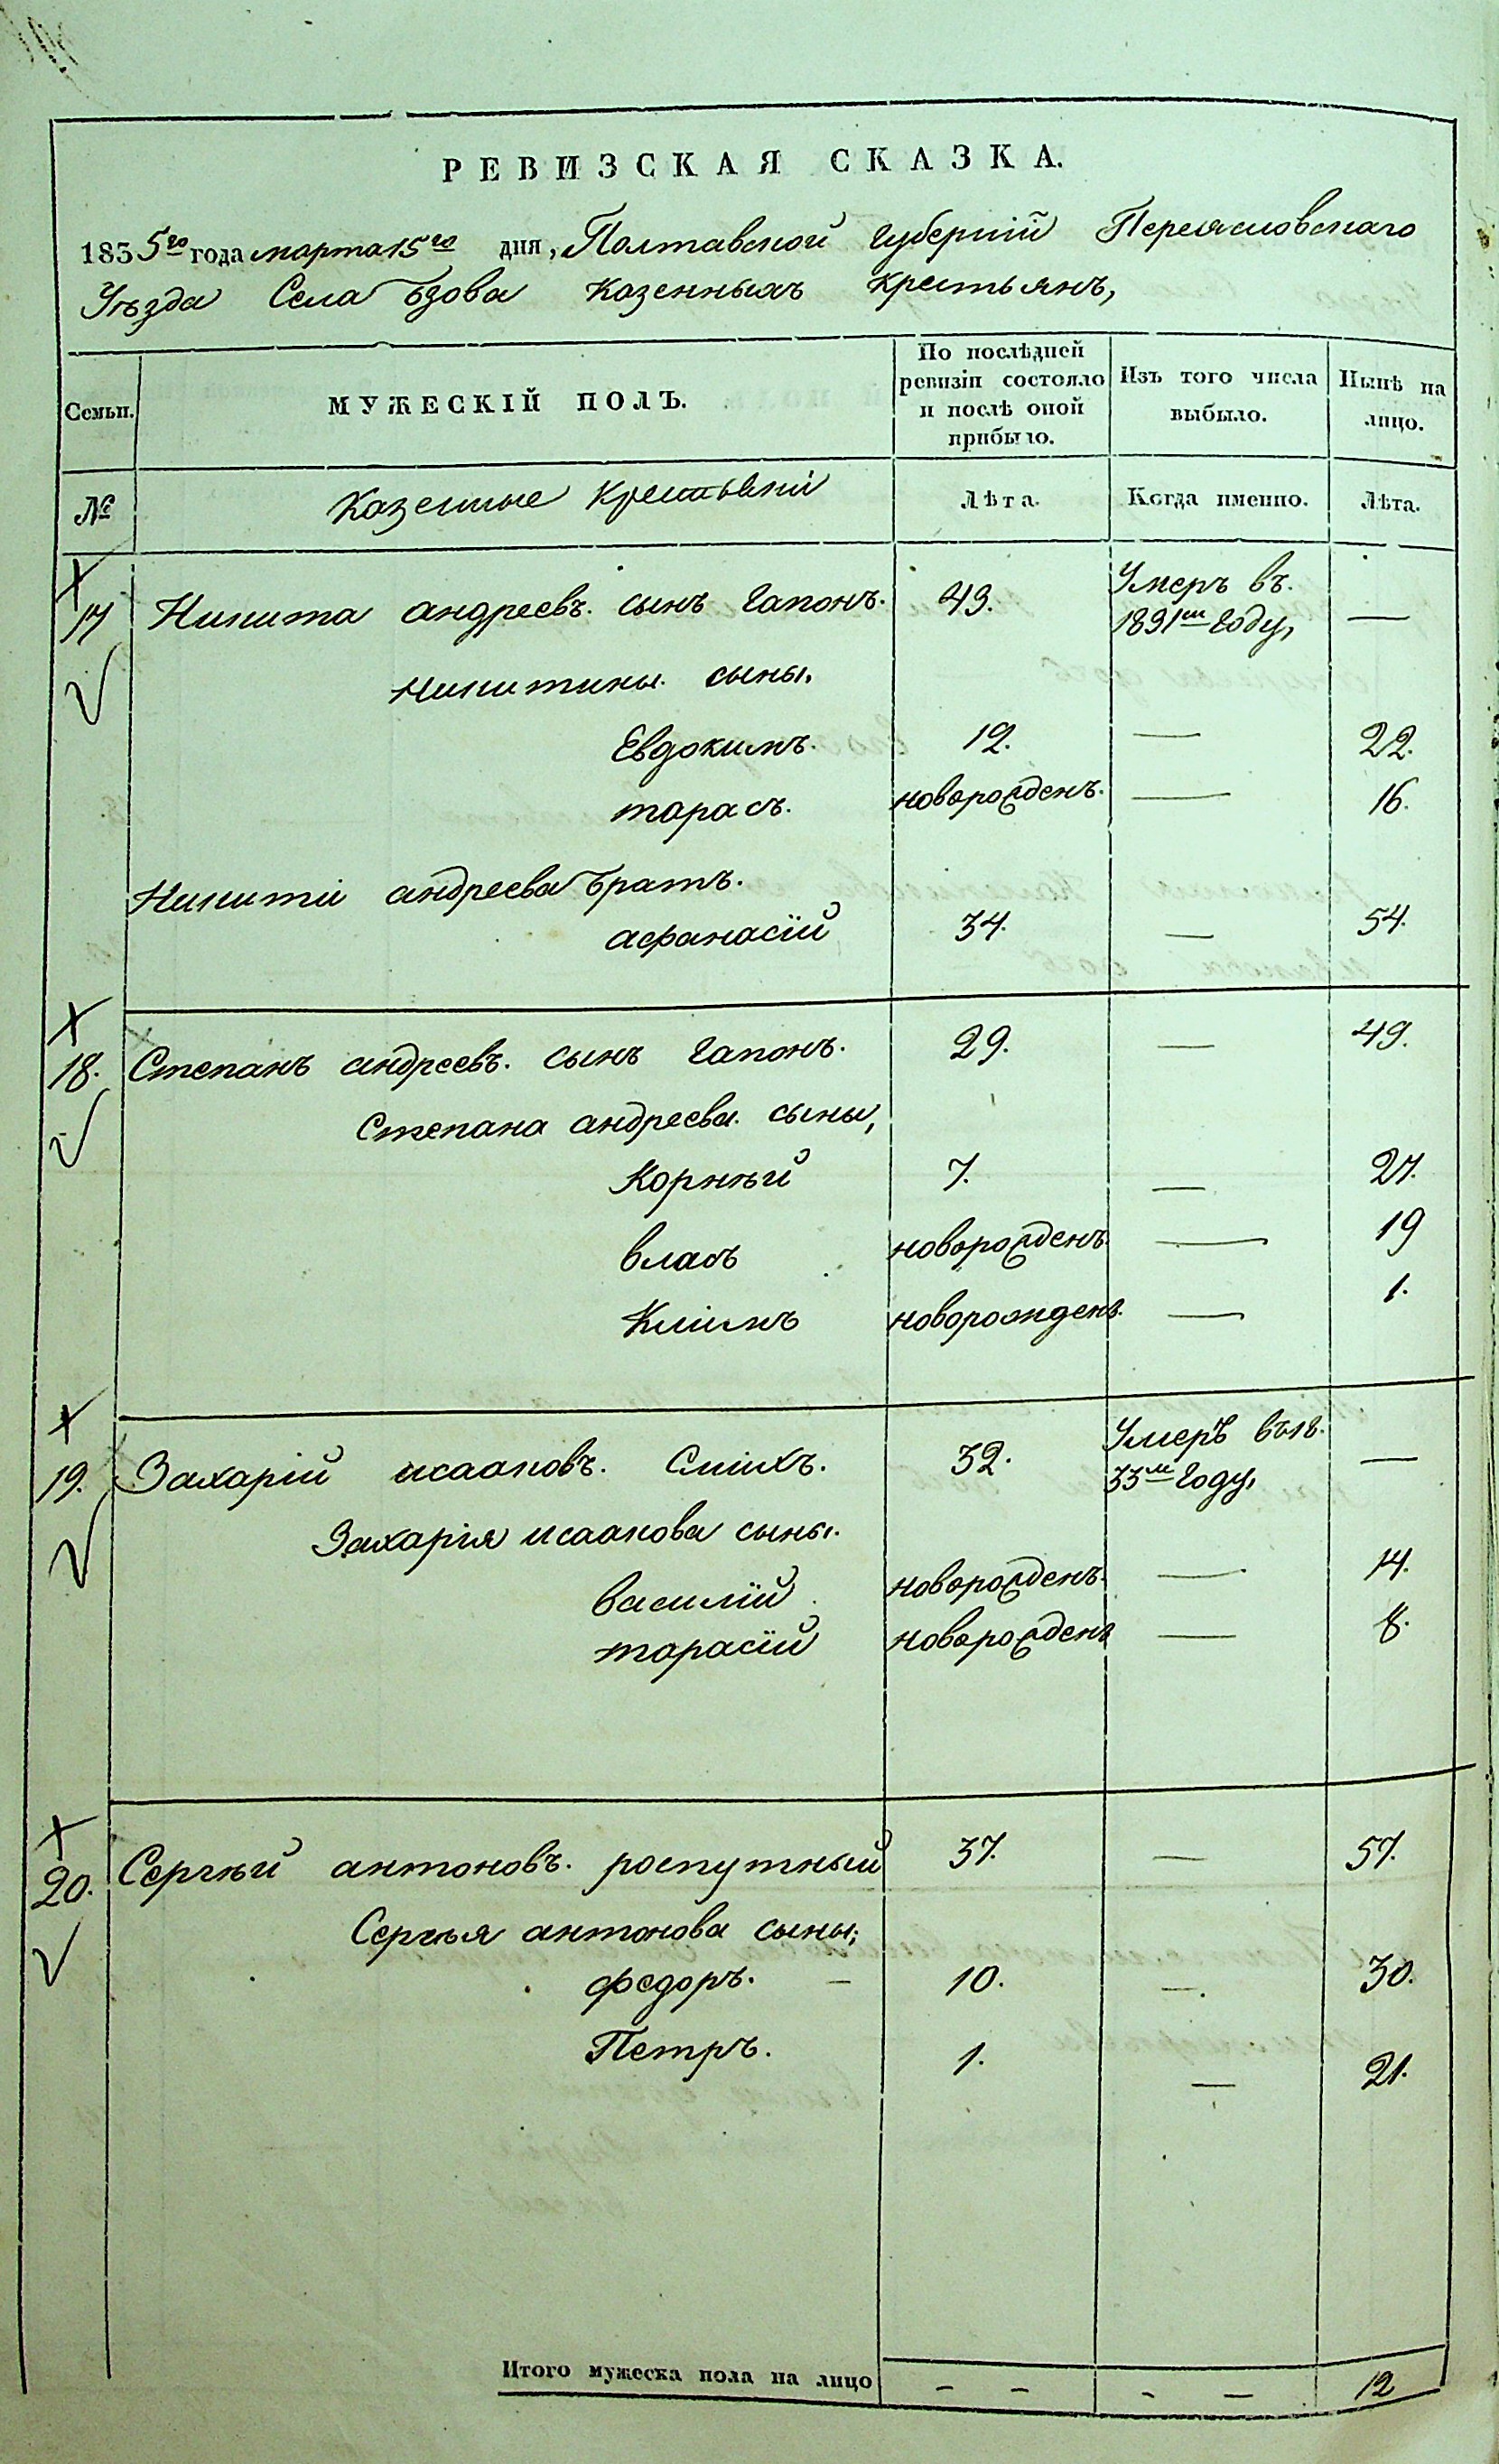 РЕВИЗСКАЯ СКАЗКА.
1835го года марта 15го дня, Полтавской губерніи Переясловскаго
Уѣзда Села Бзова казенныхъ крестьянъ,
Семьи.
МУЖЕСКІЙ ПОЛЪ.
По послѣдней ревизіи состояло и послѣ оной прибыло.
Изъ того числа выбыло.
Нынѣ на лицо.
№ Казенные крестьяни Лѣта. Когда именно. Лѣта.
17 Никита андреевъ. сынъ гапонъ. 43. Умеръ въ. 1831м году, —
Никитины. сыны.
Евдокимъ. 12. — 22.
тарасъ. новорожденъ. — 16.
Никиті андреева братъ.
афанасій 34. — 54.
18. Степанъ андреевъ. сынъ гапонъ. 29. — 49.
Степана андреева. сыны,
Корнѣй 7. — 27.
власъ новорожденъ. — 19
Клімъ новорожденъ. — 1.
19. Захарій исааковъ. Сміхъ. 32. Умеръ въ 18. 33м году, —
Захарія исаакова сыны.
василій новорожденъ. — 14.
тарасій новорожденъ — 8.
20. Сергѣй антоновъ. роспутный 37. — 57.
Сергѣя антонова сыны;
федоръ. — 10. — 30.
Петръ. 1. — 21.
Итого мужеска пола на лицо — — — — 12